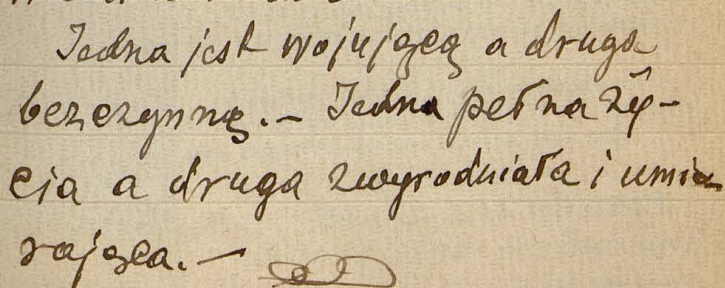 Jedna jest wojującą a druga
bezczynną.— Jedna pełna ży-
cia a druga zwyrodniała i umie
rająca.—